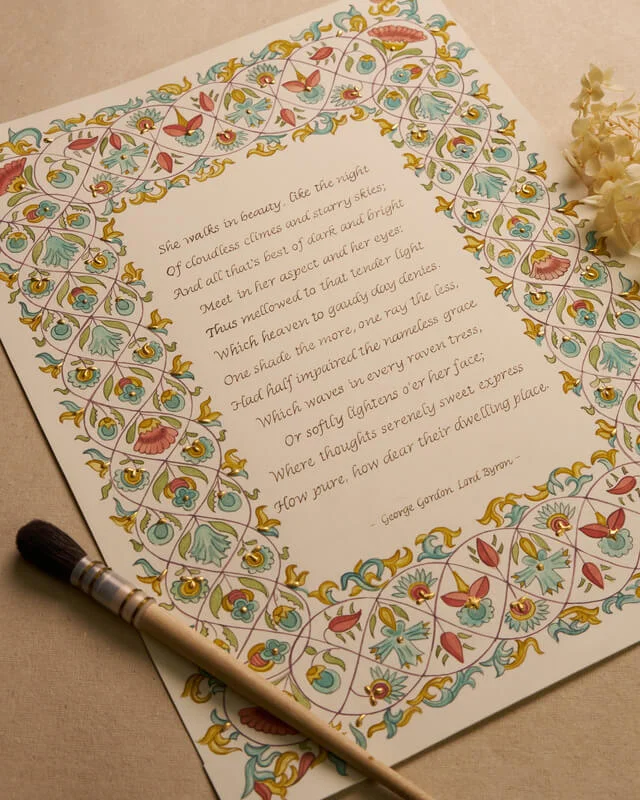 She walks in beauty, like the night
Of cloudless climes and starry skies;
And all that's best of dark and bright
Meet in her aspect and her eyes:
Thus mellowed to that tender light
Which heaven to gaudy day denies.
One shade the more, one ray the less,
Had half impaired the nameless grace
Which waves in every raven tress,
Or softly lightens o'er her face;
Where thoughts serenely sweet express
How pure, how dear their dwelling place.
- George Gordon Lord Byron -